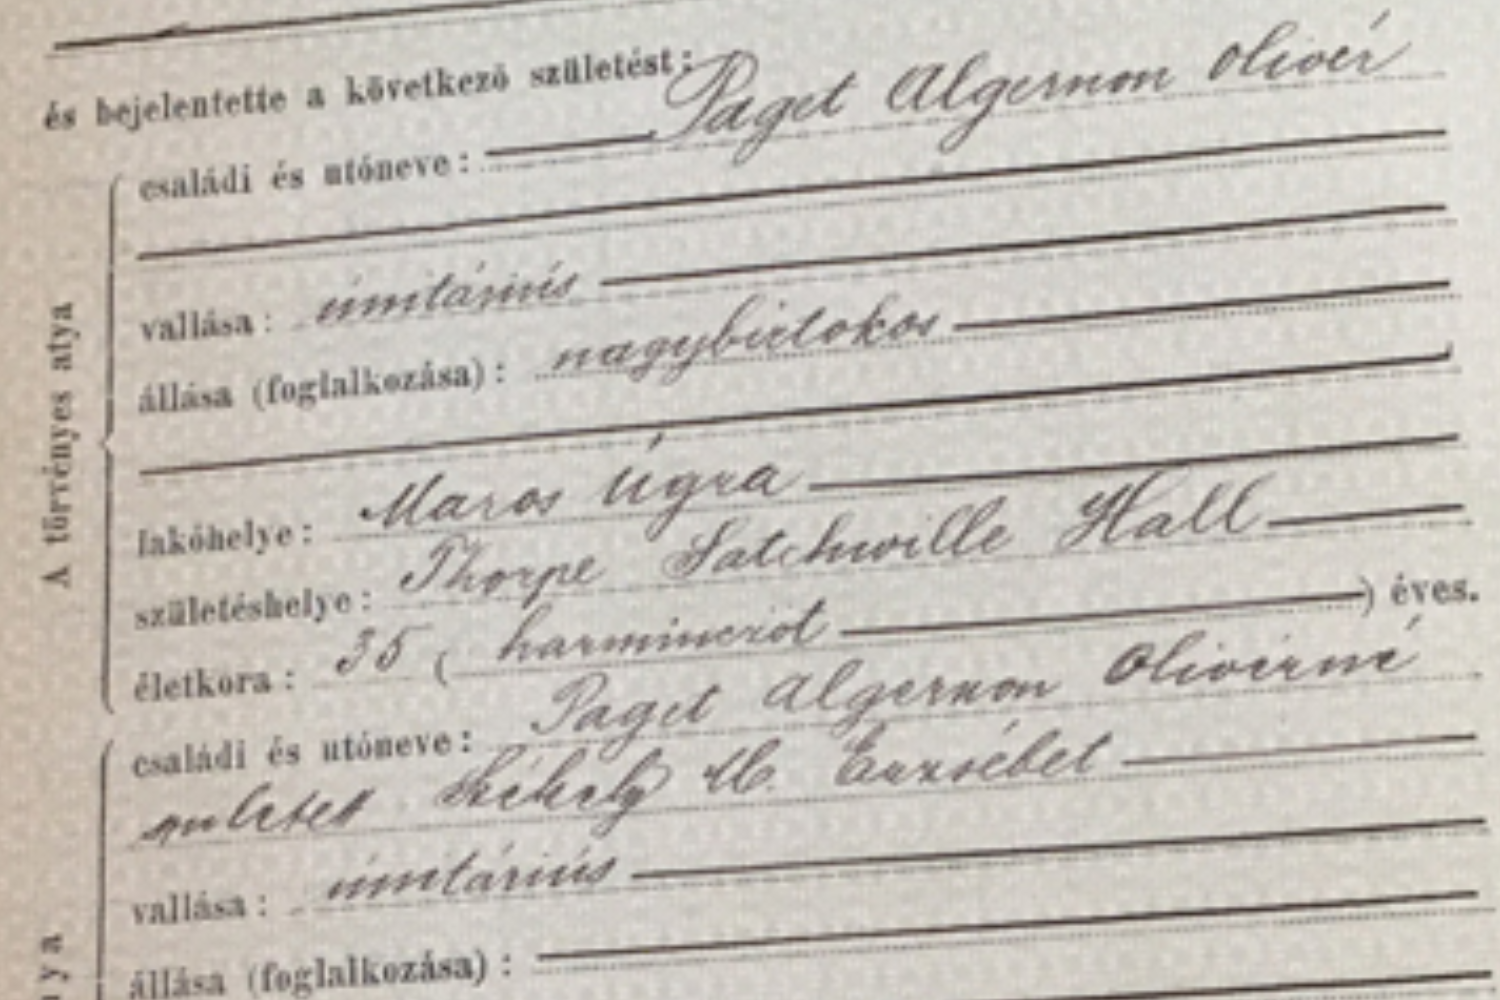 és bejelentette a következő születést:
családi és utóneve: Paget Algernon Olivér
vallása: únitáriús
állása (foglalkozása): nagybirtokos
A törvényes atya
lakóhelye: Maros Úgra
születéshelye: Thorpe Satchwille Hall
életkora: 35 (harmincöt) éves.
családi és utóneve: Paget Algernon Olivérné
született Székely M. Erzsébet
vallása: únitáriús
állása (foglalkozása):
nya